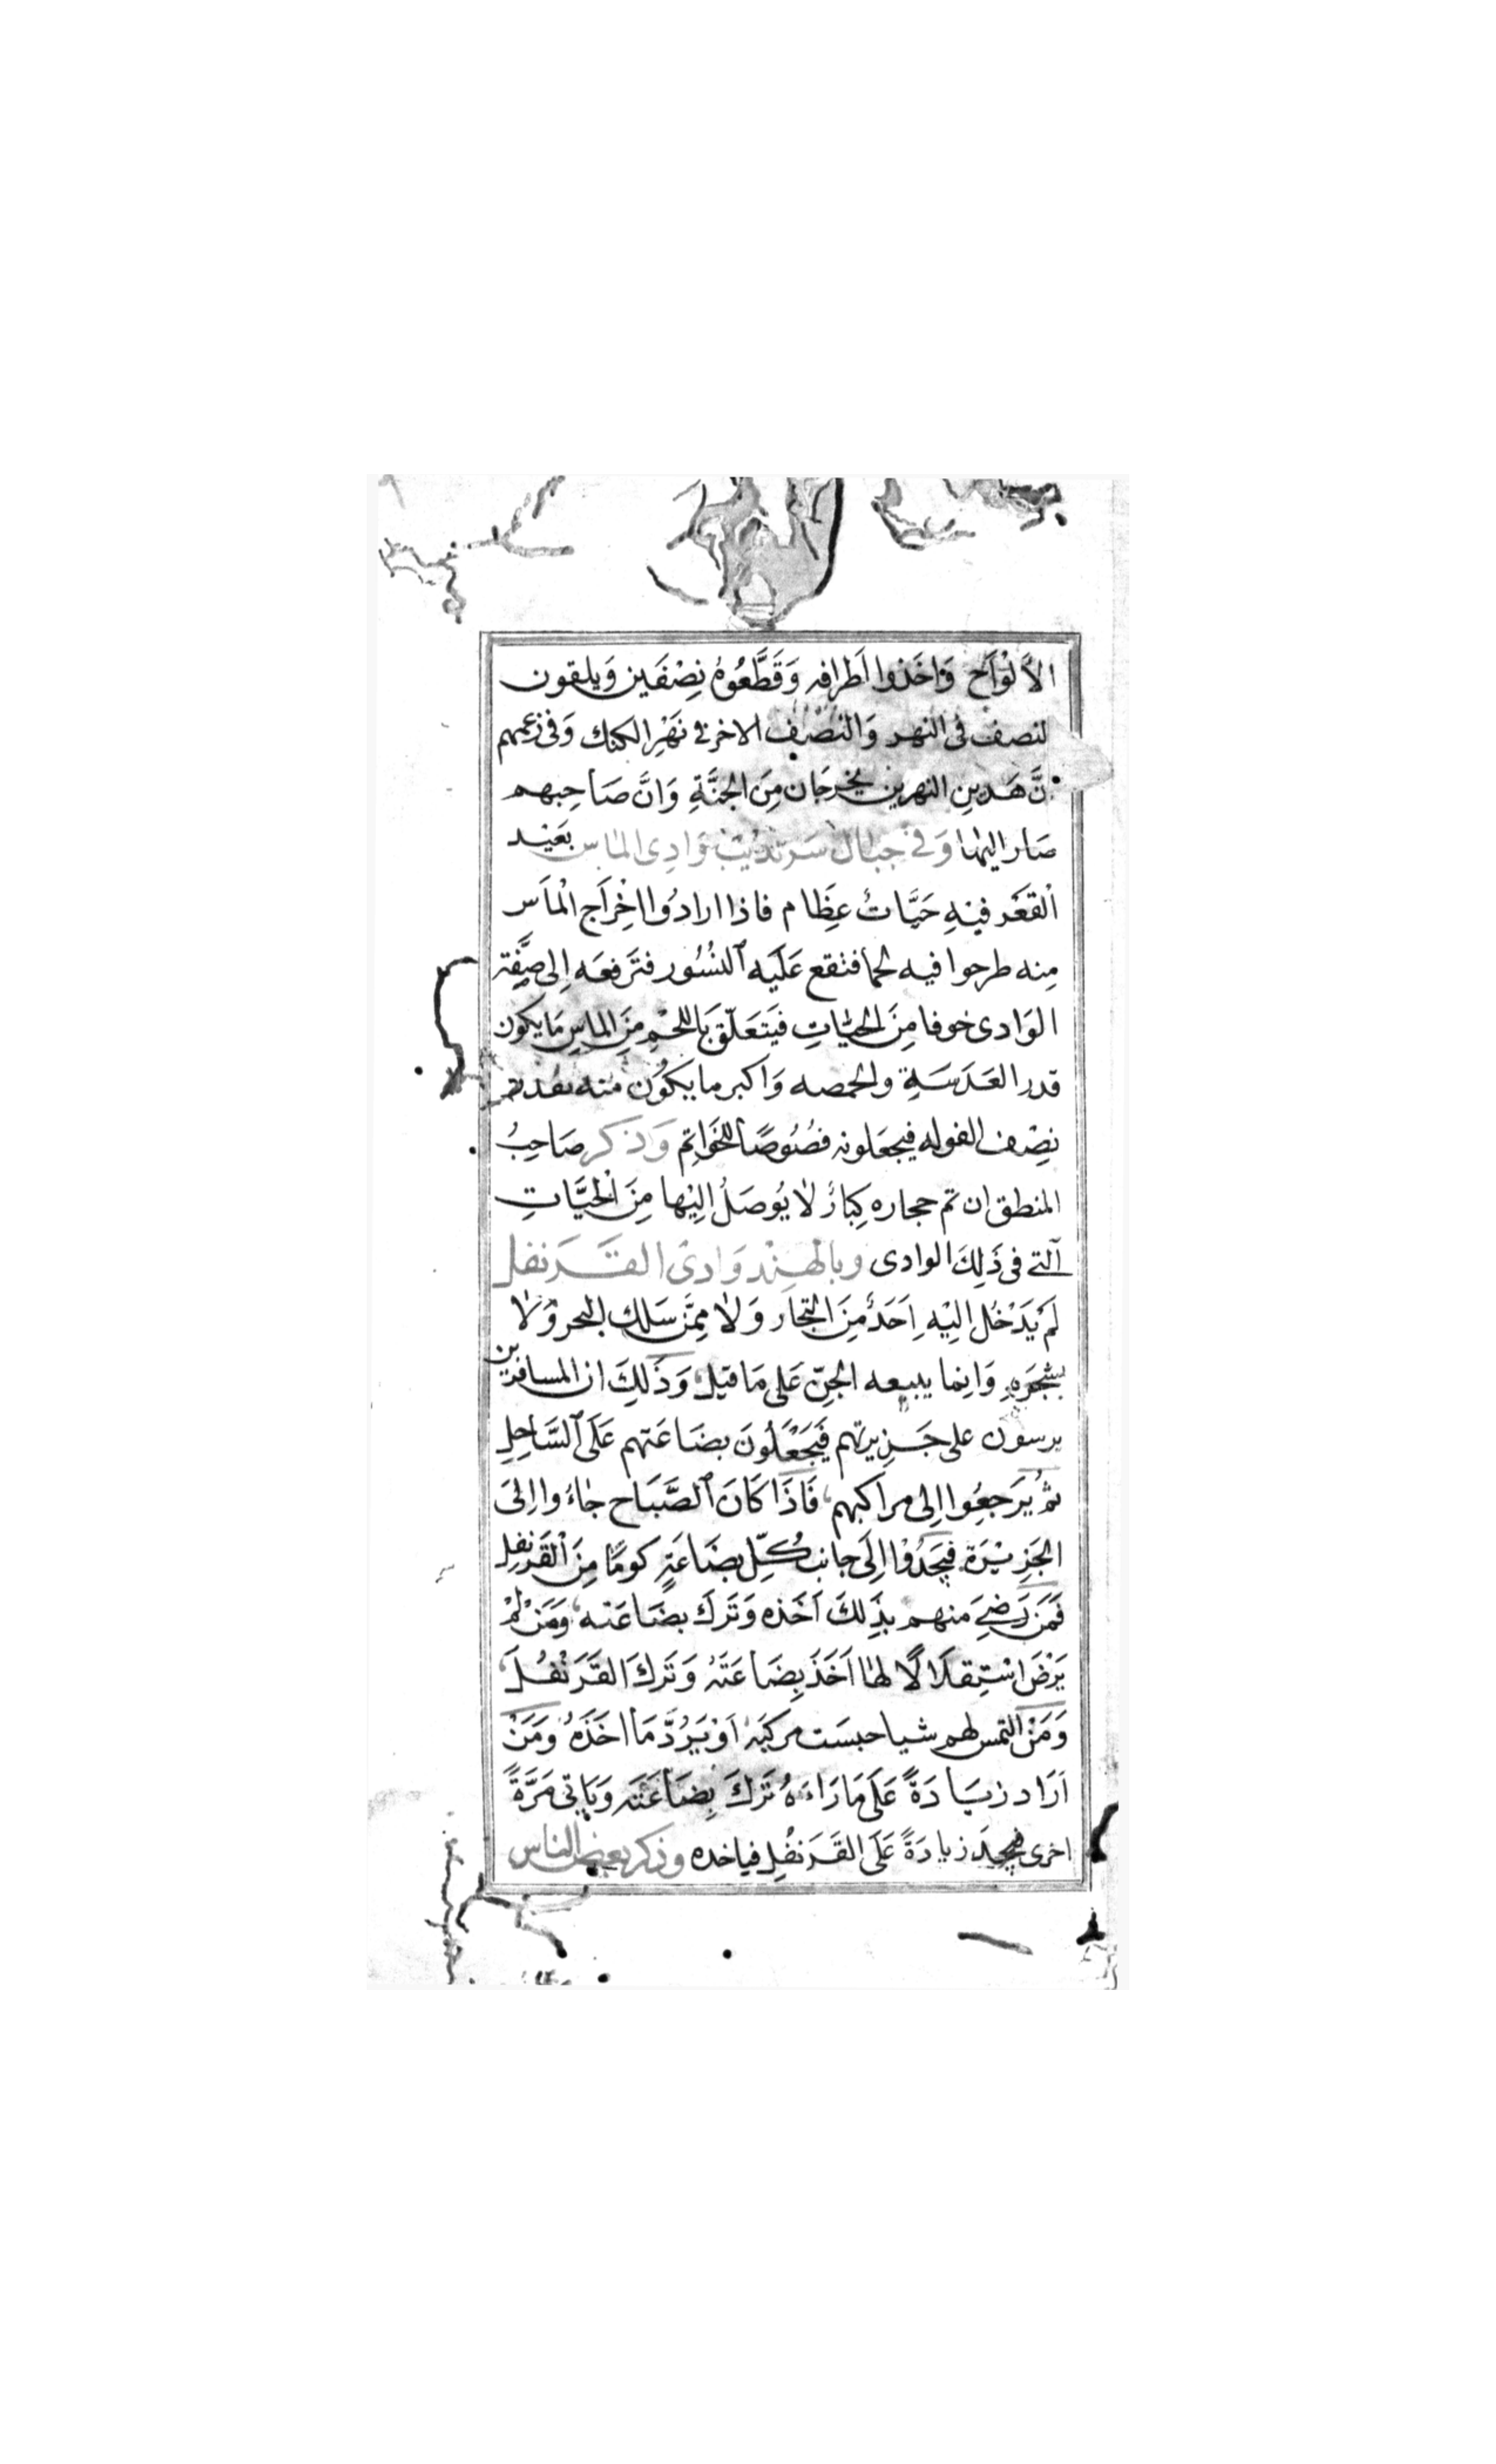 الاَلْوَاَح وَاخَذوا اَطرافِه وَقَطَّعُوهُ نِصْفَين وَيلقون
لنصف فى النهر وَالنصْف الاخر فى نَهْرِ الكنك وَفى زعمهم
نَّ هَدينِ النهرين يخرجَان مِنَ الجنَّةِ وَانَّ صَاحِبهم
صَار اليهَا وَفى جبال سَرَنديبَ وَادِى الماس بَعَيْد
اْلقعَر فيْهِ حَيَّاتٌ عِظَام فاذا ارادُوا اخْرَاَج الْماَس
مِنه طرحوا فيه لحما فتقع عَلَيه اَلنُسُور فتَرفعَه اِلى ضِفَّته
الوَادى خوفا مِنَ الحيَّاتِ فيَتَعَلّق بَاللحْمِ مِنَ الماسِ مَا يكون
قدر العَدَسَةِ والحمصه وَاكبر ما يكوُن منه
نِصْف الفوله فيجعَلونه فصُوصًا للخَوَاتم وَذكر صَاحِبُ
المنطق ان ثم حجاره كِبارٌ لا يُوصَلُ اِليْها مِنَ اْلحَيَّاتِ
اَلتے فى ذَلِكَ الوادى وبالهِنْد وَادىْ القَرَنفل
لَمْ يَدَخُل اليْهِ اَحَدٌ مِنَ التجار وَلا مِمَّن سَلك البحر وَلا
بشجَرَهِ وَانِما يبيعه الجِنّ عَلى مَا قيل وَذَلِكَ ان المسافرين
يرسون على جَزِيرتهم فيَجَعْلَوُنَ بضَاعَتهم عَلَى اَلسَّاحِلِ
ثمُ يَرَجعِوُا اِلى مراكبهم فَاذَا كَانَ اَلصَّبَاح جَاءُوا اِلىَ
الجَزِيْرَة فيجَدُوْا اِلَى جانب كُلّ بضَاعَةٍ كومًا مِنَ اْلقَرَنفلِ
فَمَن رَضىَ منهم بذَلِكَ اَخَذه وَتَرَكَ بضَاعَته وَمَنْ لَمْ
يَرْضَ اسْتِقلَاَلًا لهَا اَخَذَ بِضَاعَتَهُ وَتَركَ القَرَنْفُلَ
وَمَنْ التمس لهم شيا حبسَت مركبَهُ اَوْ يَرُدَّ مَا اخَذَهُ وَمَنْ
اَرَاد زيَادَةً عَلَى مَا رَاءَهُ تَرَكَ بِضَاعَتَه وَيَاتى مَرَّةً
اخرى فيجدَ زيادَةً عَلَى القَرَنفُلِ فياخده وذكر بعض الناس